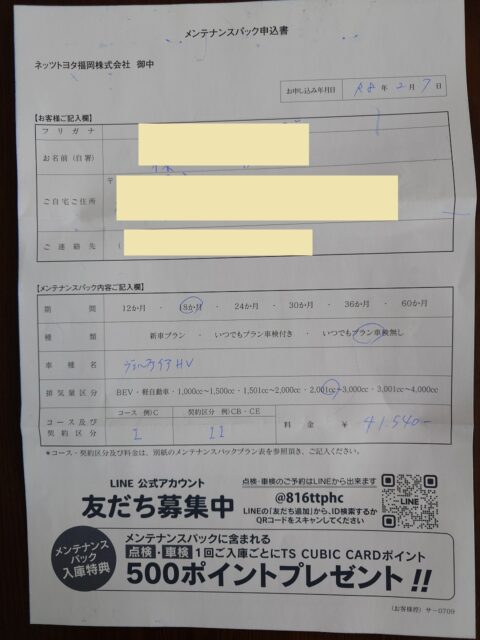 メンテナンスパック申込書
ネッツトヨタ福岡株式会社 御中
お申し込み年月日 R8 年 2 月 7 日
【お客様ご記入欄】
フリガナ
お名前(自署)
〒
ご自宅ご住所
ご連絡先 (
【メンテナンスパック内容ご記入欄】
期間 12か月 ・ 18か月 ・ 24か月 ・ 30か月 ・ 36か月 ・ 60か月
種類 新車プラン ・ いつでもプラン車検付き ・ いつでもプラン車検無し
車種名 ヴェルファイアHV
排気量区分 BEV・軽自動車・1,000cc～1,500cc・1,501cc～2,000cc・2,001cc～3,000cc・3,001cc～4,000cc
コース及び契約区分 コース 例)C 契約区分 例)CB・CE 料金 ¥ 41,540-
*コース・契約区分及び料金は、別紙のメンテナンスパックプラン表を参照頂き、ご記入ください。
LINE 公式アカウント
友だち募集中
点検・車検のご予約はLINEから出来ます
@816ttphc
LINEの「友だち追加」から、ID検索するか
QRコードをスキャンしてください
LINE
メンテナンスパック入庫特典
メンテナンスパックに含まれる
点検・車検 1回ご入庫ごとにTS CUBIC CARDポイント
500ポイントプレゼント!!
(お客様控)サ-0709